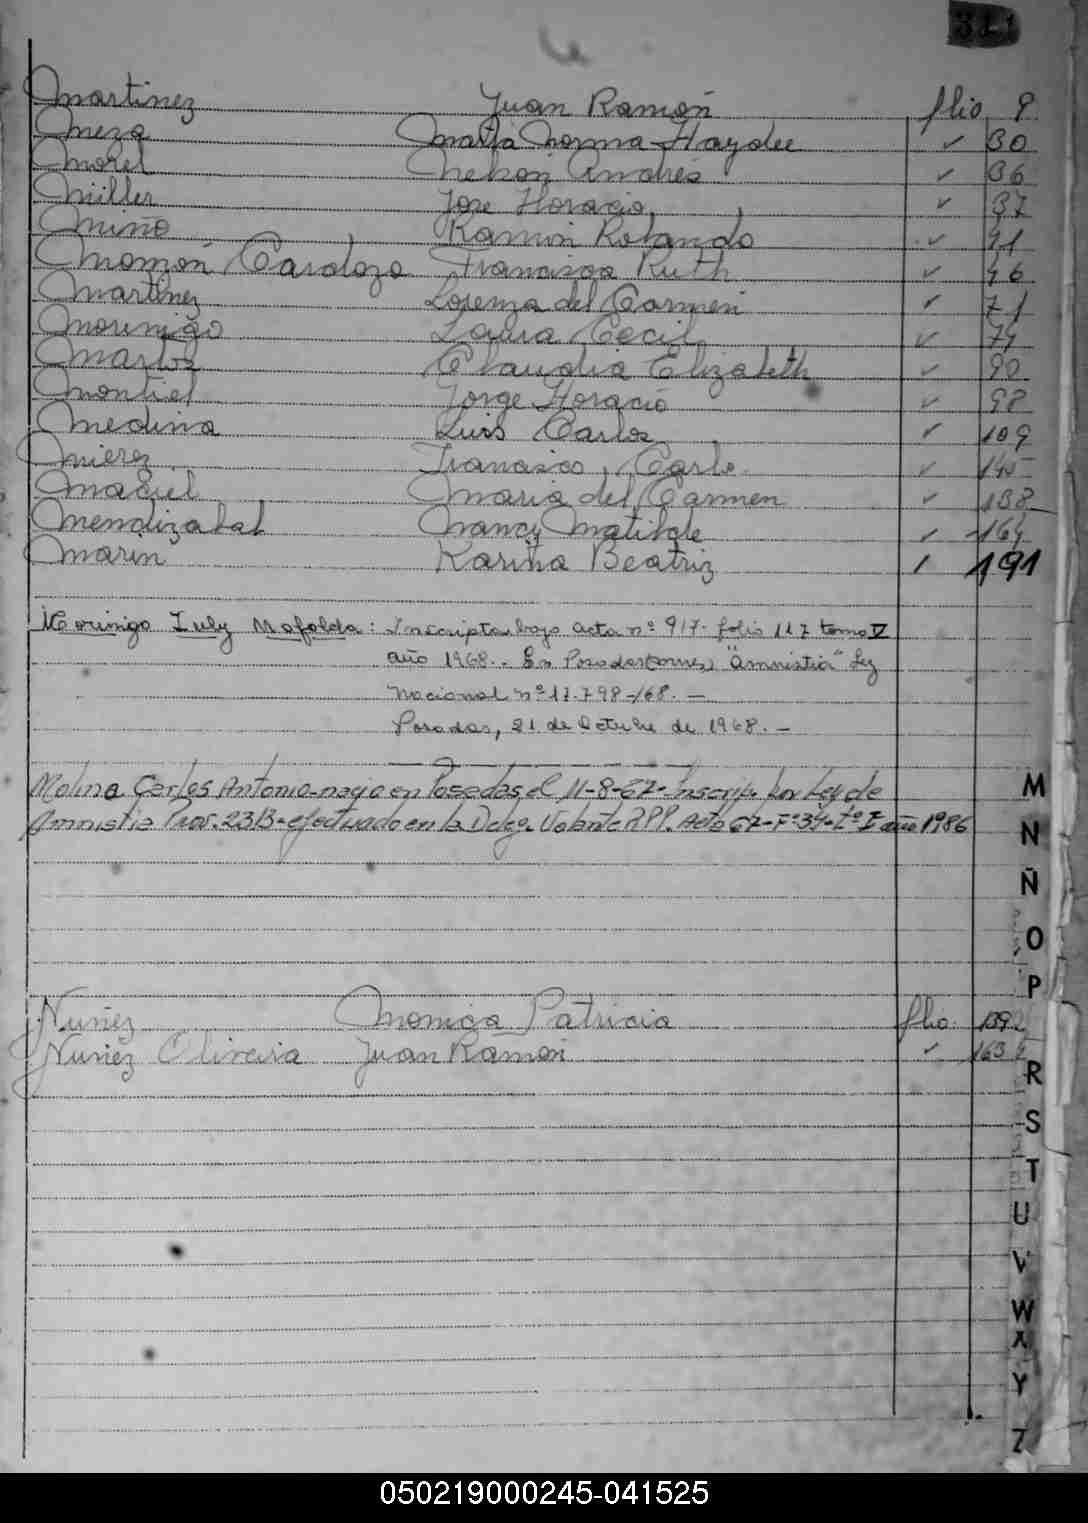 311
Martinez Juan Ramón folio 9
Meza Marta Norma Haydee ✓ 30
Morel Nelson Andrés ✓ 36
Müller Jose Horacio ✓ 37
Miño Ramón Rolando ✓ 41
Monzón Cardozo Francisca Ruth ✓ 46
Martinez Lorenza del Carmen ✓ 71
Morinigo Laura Cecil ✓ 74
Martos Claudia Elizabeth ✓ 90
Montiel Jorge Horacio ✓ 98
Medina Luis Carlos ✓ 109
Mierez Francisco Carlo ✓
Maciel Maria del Carmen ✓ 138
Mendizabal Nancy Matilde ✓ 164
Marin Karina Beatriz 191
Morinigo July Mafalda: Inscripta bajo acta nº 917. folio 117 tomo V
año 1968.. En Posadas "amnistia" Ley
Nacional nº 17.798-/68. —
Posadas, 21 de Octubre de 1968. —
Molina Carlos Antonio-nació en Posadas, el 11-8-67- Inscrip. por Ley de
Amnistia Prov. 2313-efectuado en la Deleg. Volante R.P.P. Acta 67-Fº34-Tº I año 1986
Nuñez Monica Patricia folio 139
Nuñez Olivera Juan Ramón ✓ 163
M
N
Ñ
O
P
R
S
T
U
V
W
X
Y
Z
050219000245-041525